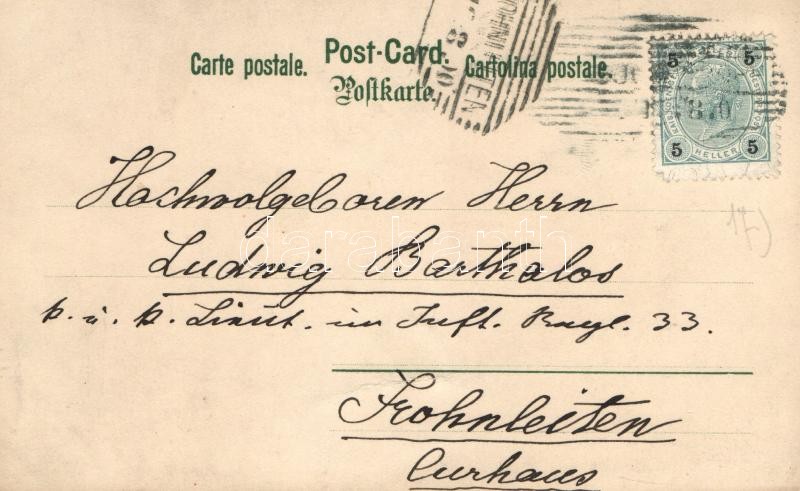 Carte postale. Post-Card. Cartolina postale.
Postkarte.
5 5
5 HELLER 5
17)
Hochwolgeboren Herrn
Ludwig Barthalos
k. u. k. Lieut. im Inft. Regt. 33.
Frohnleiten
Curhaus
darabanth